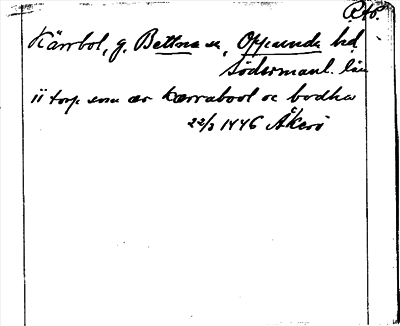 RAp.
Kärrbol, g. Bettna sn, Oppunda hd,
Södermanl. län
ii torp som ær kærrabool oc bodha
22/2 1446 Åkerö